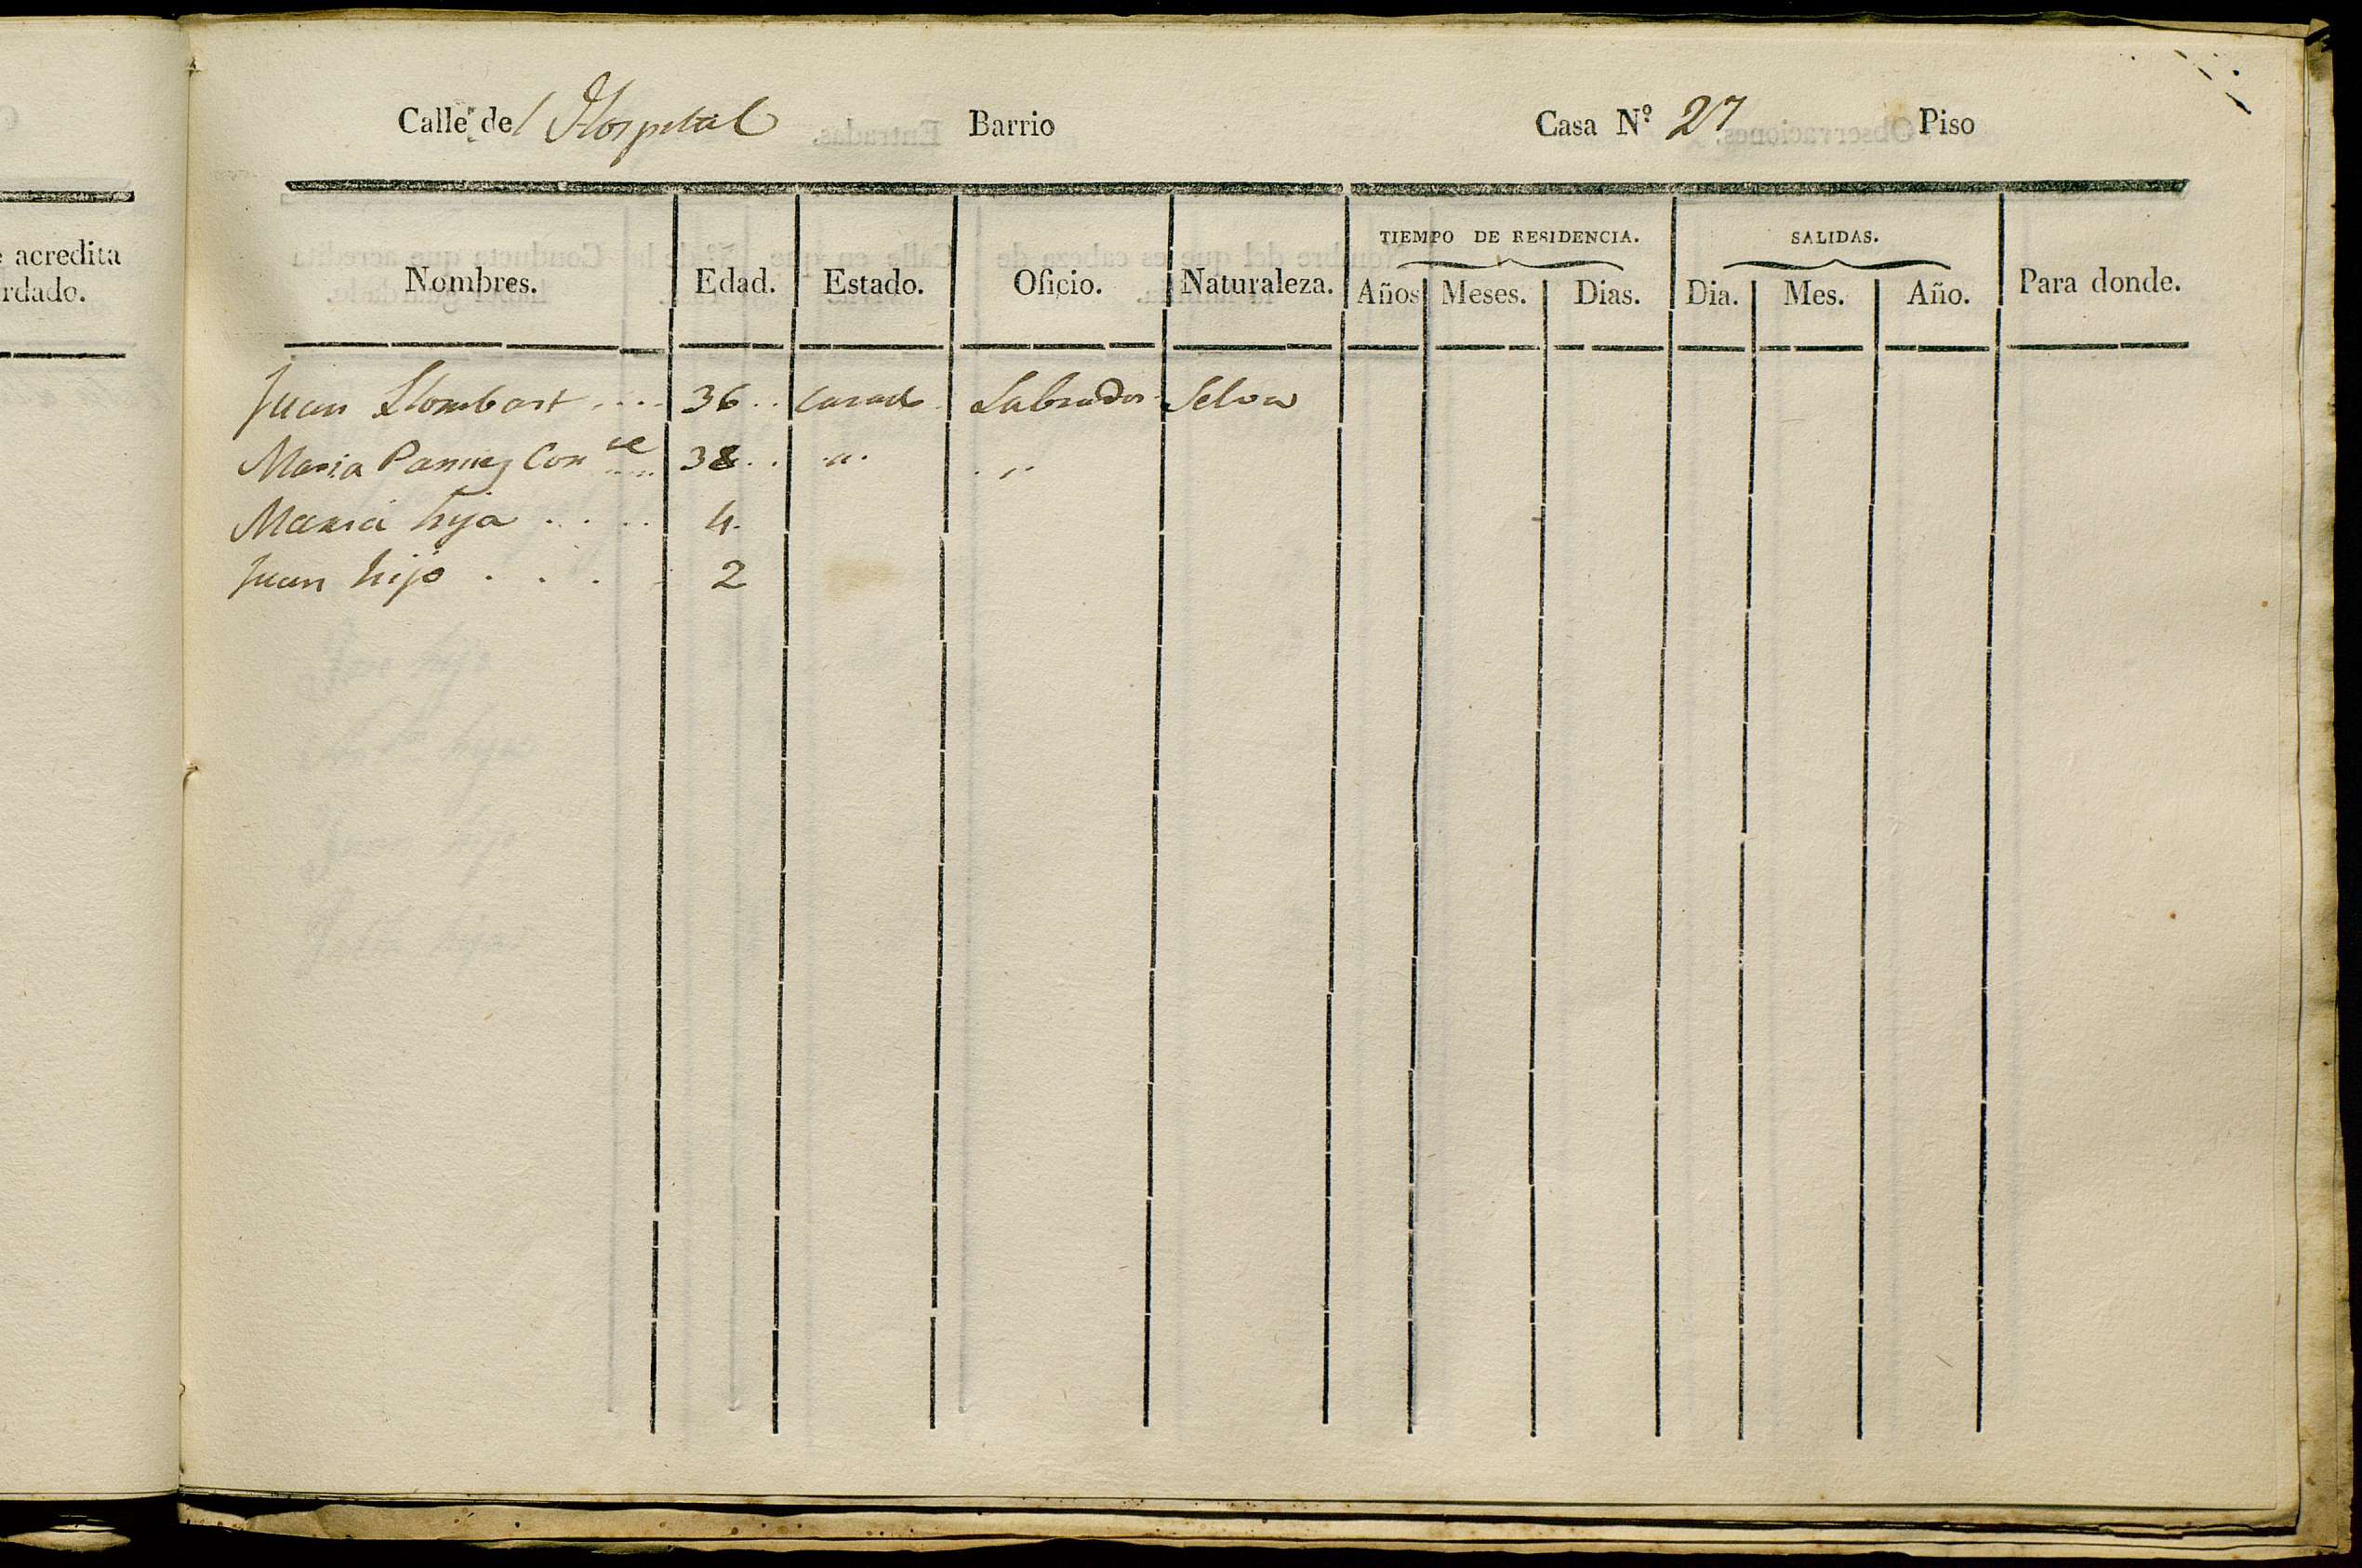 e acredita
rdado.
Calle del Hospital Barrio Casa Nº 27 Piso
TIEMPO DE RESIDENCIA. SALIDAS.
Nombres. Edad. Estado. Oficio. Naturaleza. Años Meses. Dias. Dia. Mes. Año. Para donde.
Juan Llombart .... 36 .. Casad. Labrador Selva
Maria Con te .... 38 .. " "
Maria hija .... 4.
Juan hijo .... 2